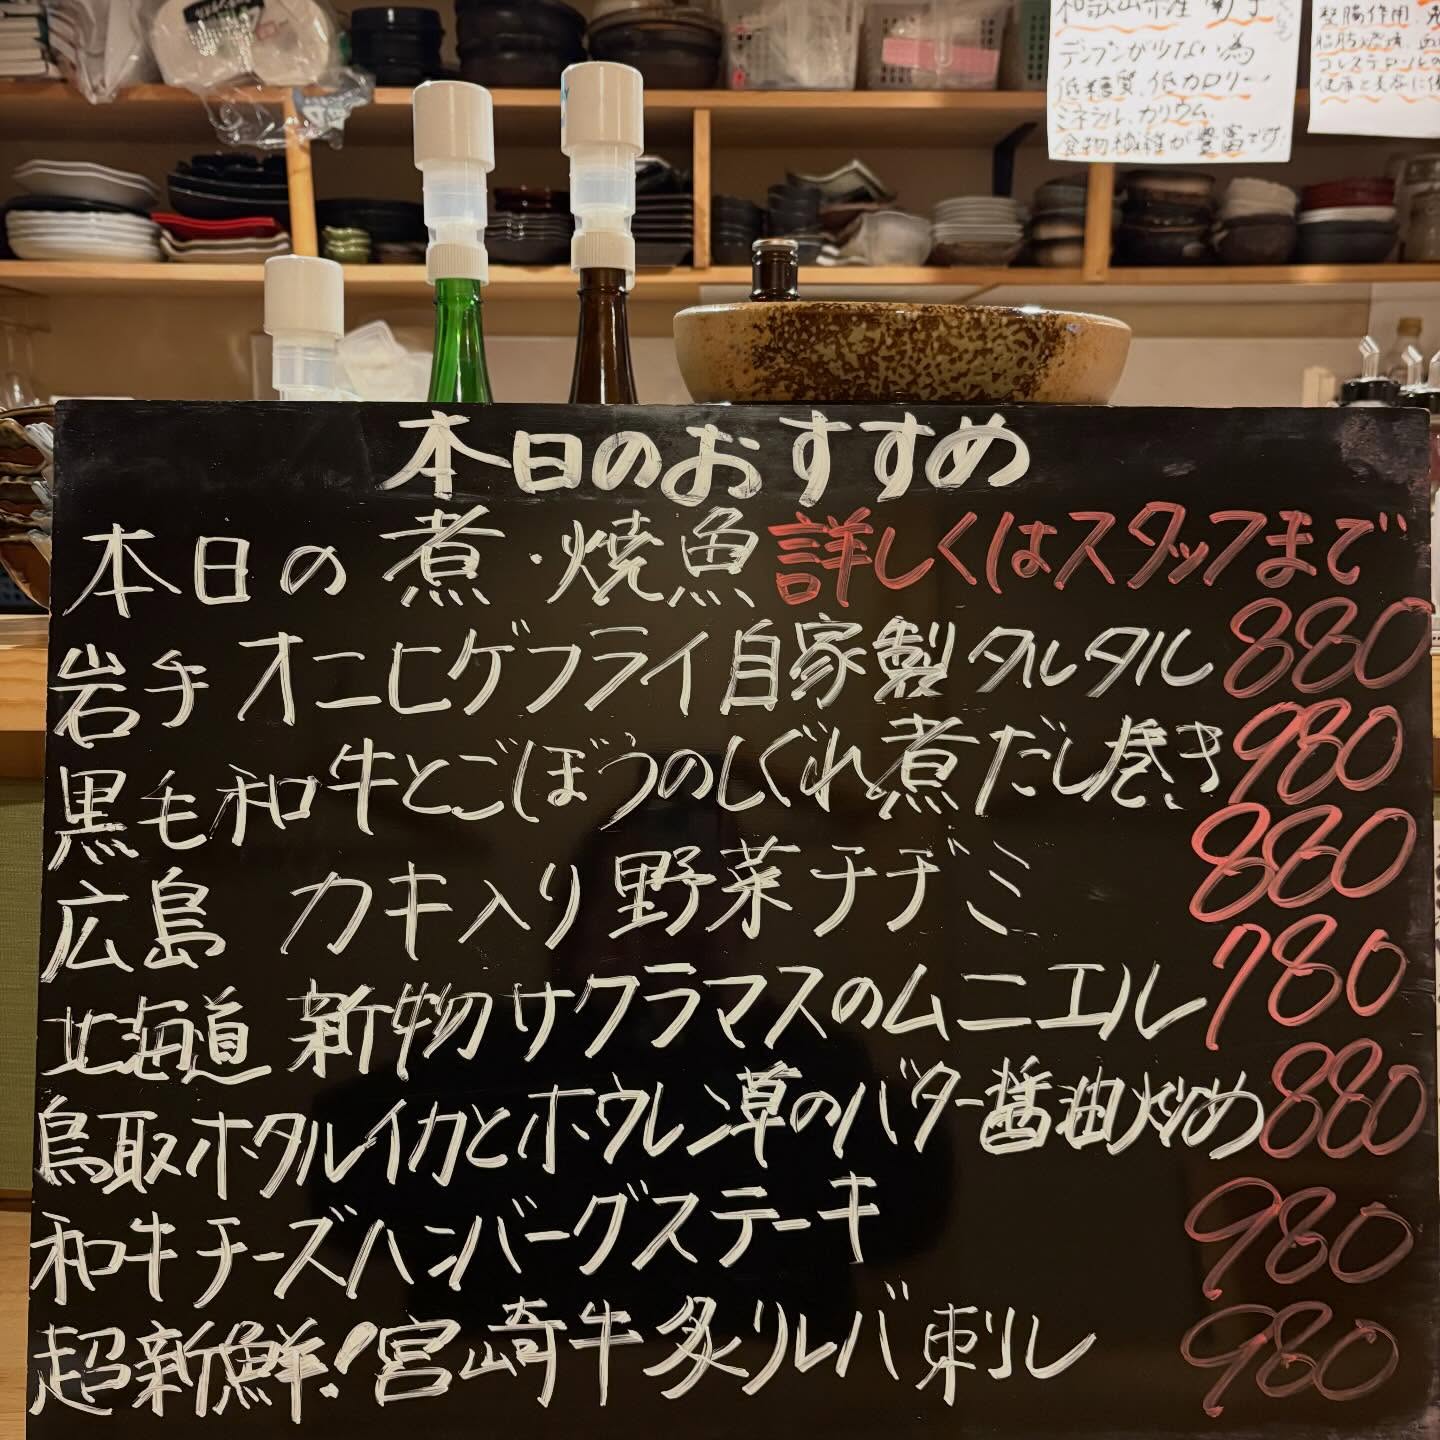 デンプンが少ない為
低糖質、低カロリー
ミネラル、カリウム、
食物繊維が豊富です!
整腸作用
本日のおすすめ
本日の 煮・焼魚 詳しくはスタッフまで
岩手 オニヒゲフライ自家製タルタル 880
黒毛和牛とごぼうのしぐれ煮だし巻き 980
広島 カキ入り野菜チヂミ 880
北海道 新物サクラマスのムニエル 780
鳥取ホタルイカとホウレン草のバター醤油炒め 880
和牛チーズハンバーグステーキ 980
超新鮮!宮崎牛炙りレバ刺し 980